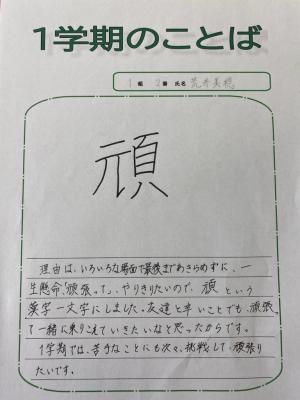 1学期のことば
1 組 2番 氏名 荒井美穂
頑
理由は、いろいろな場面で最後まであきらめずに、一
生懸命、「頑張って」、やりきりたいので、頑という
漢字一文字にしました。友達と辛いことでも、頑張っ
て一緒に乗りこえていきたいなと思ったからです。
1学期では、苦手なことにも次々、挑戦して頑張り
たいです。